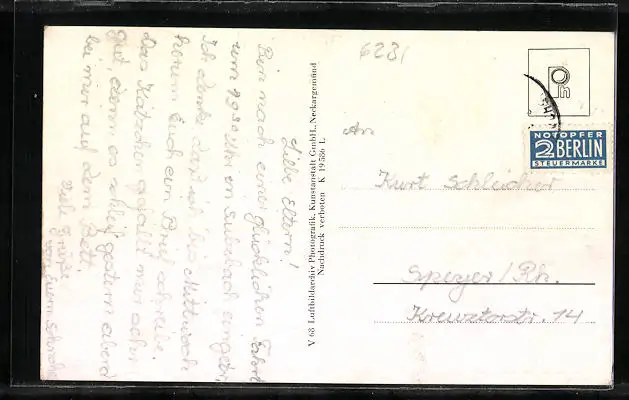 Liebe Eltern!
Bin nach einer glücklichen Fahrt
um 19 30 Uhr in Sulzbach
Ich denke, daß ich bis Mittwoch
herum Euch ein Brief schreibe.
Das Kätzchen gefällt mir sehr
gut, denn es schlief gestern abend
bei mir auf dem Bett.
Viele Grüße
von Eurem
V 68 Luftbildarchiv Photografik, Kunstanstalt GmbH., Neckargemünd
Nachdruck verboten K 19586 L
623/
An
Kurt Schleicher
Speyer/Rh.
Kreuztorstr. 14
NOTOPFER
2 BERLIN
STEUERMARKE